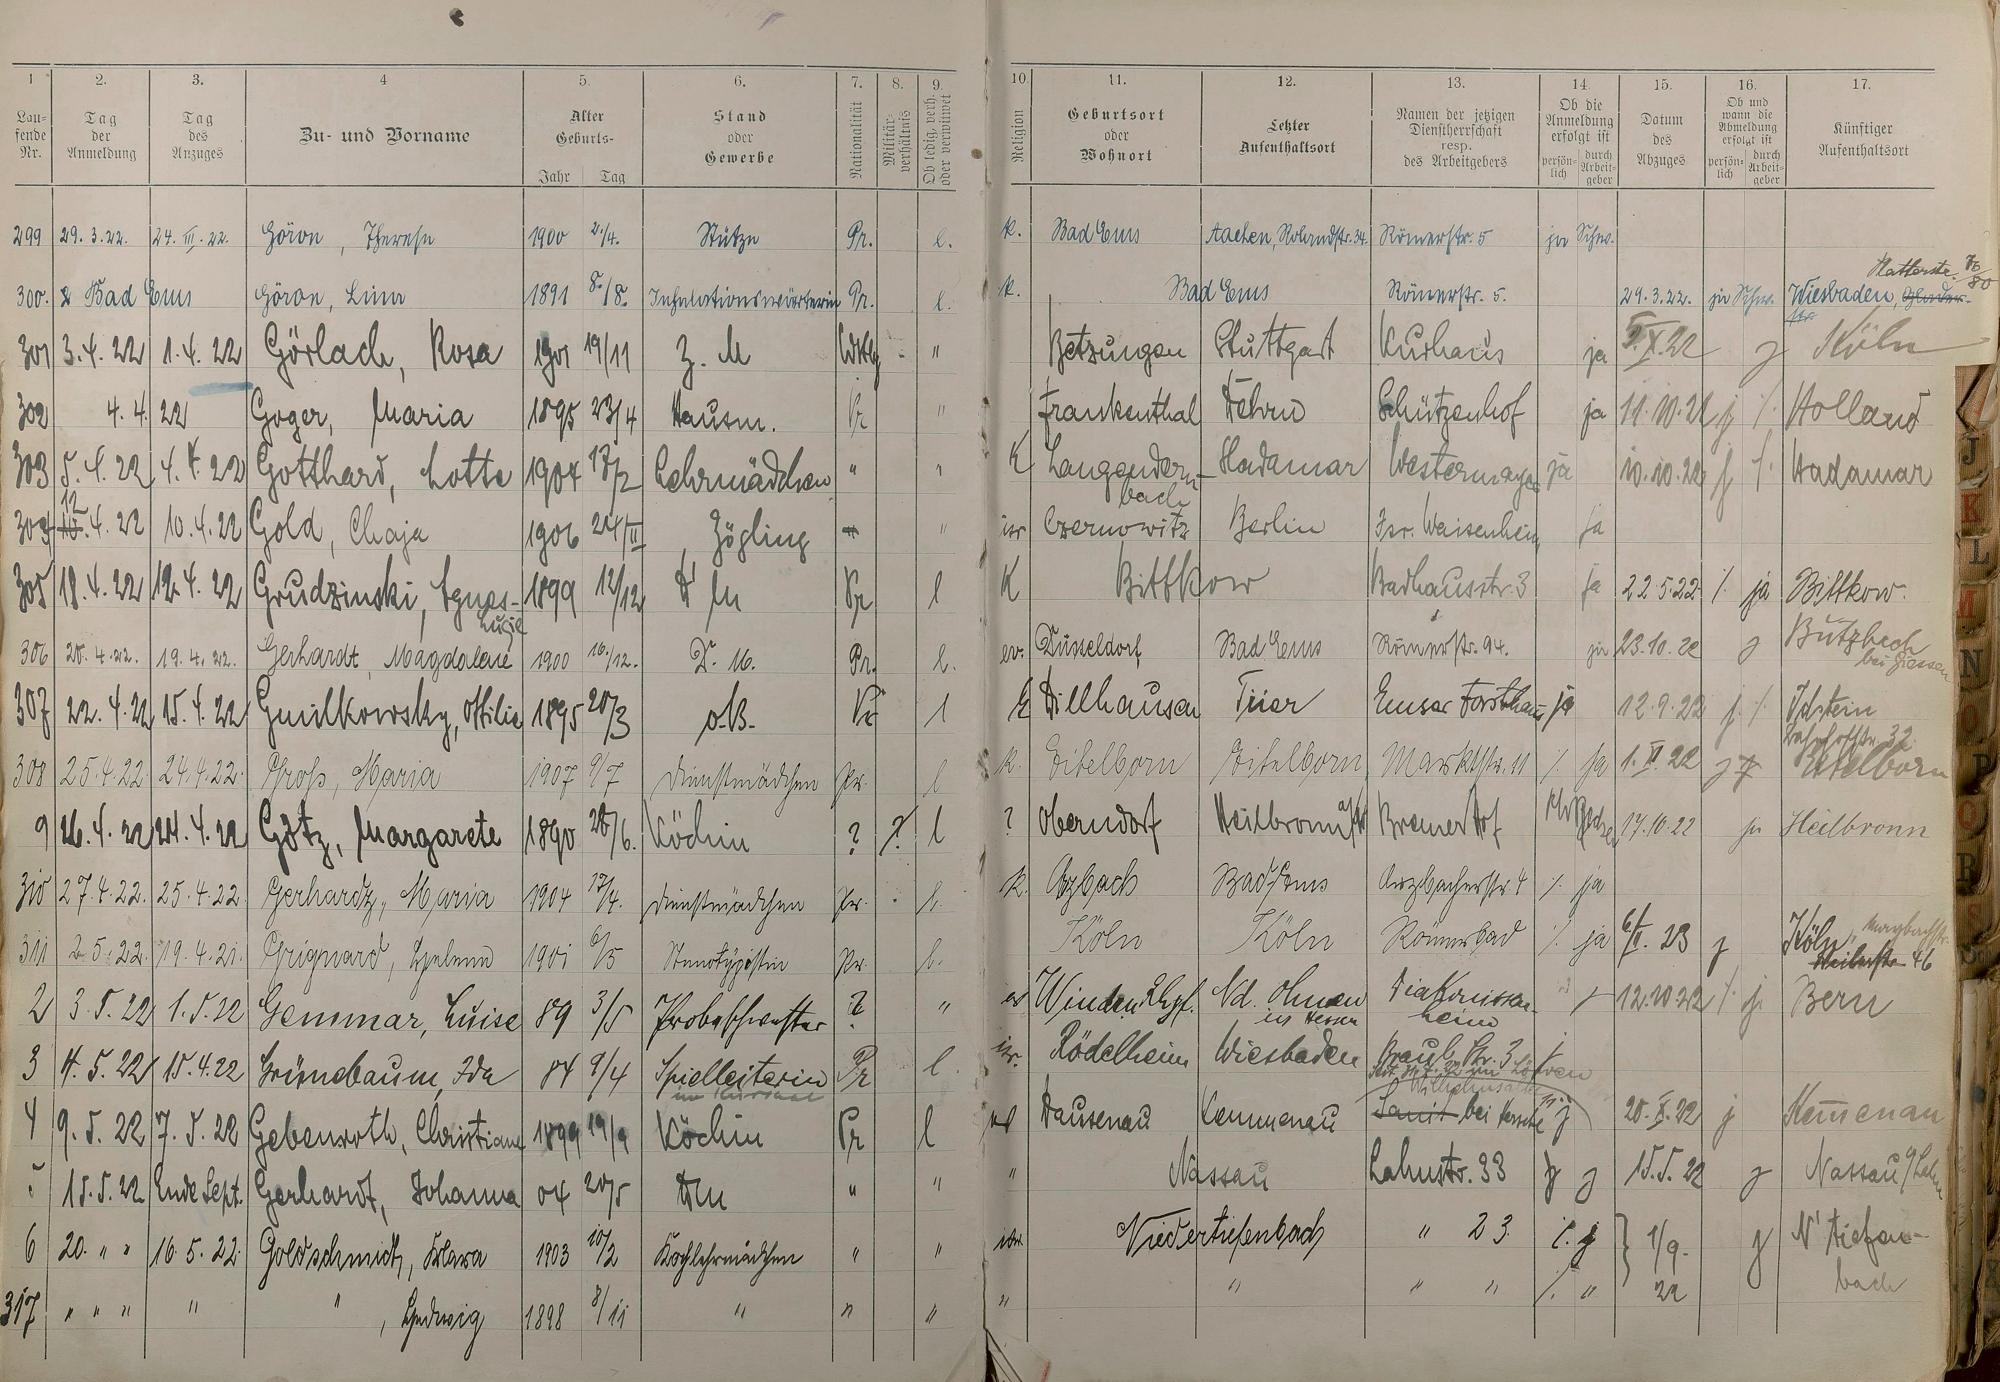 1 2. 3. 4 5. 6. 7. 8. 9. 10. 11. 12. 13. 14. 15. 16. 17.
Laufende Nr. Tag der Anmeldung Tag des Anzuges Zu- und Vorname Alter Geburts- Jahr Tag Stand oder Gewerbe Nationalität Militärverhältnis Ob ledig, verh. oder verwitwet Religion Geburtsort oder Wohnort Letzter Aufenthaltsort Namen der jetzigen Dienstherrschaft resp. des Arbeitgebers Ob die Anmeldung erfolgt ist persönlich durch Arbeitgeber Datum des Abzuges Ob und wann die Abmeldung erfolgt ist persönlich durch Arbeitgeber Künftiger Aufenthaltsort
299 29.3.22. 24.III.22. Göron, Therese 1900 2./4. Stütze Pr. l. k. Bad Ems Aachen, Rolandstr. 34. Römerstr. 5 ja Schw.
300. Bad Ems Göron, Lina 1891 8./8. Inhalationswärterin Pr. l. k. Bad Ems Römerstr. 5. 29.3.22. ja Schw. Wiesbaden,
301 3.4.22 1.4.22 Görlach, Rosa 1901 19/11 Z. M " Betzungen Stuttgart Kurhaus ja 5.X.22 j Köln
302 4.4.22 Goger, Maria 1895 23/4 Hausm. Pr " Frankenthal Fehrn Schützenhof ja 11.10.22 j /. Holland
303 5.4.22 4.4.22 Gotthard, Lotte 1904 17/2 Lehrmädchen " " K Langendernbach Hadamar Westermayer ja 10.10.22 j /. Hadamar
304 12.4.22 10.4.22 Gold, Chaja 1906 24/II Zögling " isr Czernowitz Berlin Isr. Waisenheim ja
305 18.4.22 12.4.22 Grudzinski, Agnes- Luzie 1899 12/12 D M Pr l K Bittkow Badhausstr. 3 ja 22.5.22 /. ja Bittkow.
306 20.4.22. 19.4.22. Gerhardt, Magdalene 1900 16./12. D. M. Pr. l. ev. Düsseldorf Bad Ems Römerstr. 94. ja 23.10.22 j Butzbach bei Giessen
307 22.4.22 15.4.22 Gmilkowsky, Ottilie 1895 20/3 o.B. Pr l k Dillhausen Trier Emser Forsthaus ja 12.9.22 j /. Idstein Bahnhofstr. 32.
308 25.4.22. 24.4.22. Groß, Maria 1907 9/7 Dienstmädchen Pr. l k. Eitelborn Eitelborn Marktstr. 11 /. ja 1.VI.22 j Eitelborn
9 26.4.22 24.4.22 Götz, Margarete 1890 26/6. Köchin ? /. l ? Oberndorf Heilbronn Bremer Hof 17.10.22 ja Heilbronn
310 27.4.22. 25.4.22. Gerhardtz, Maria 1904 17/4. Dienstmädchen Pr. l. k. Arzbach Bad Ems Arzbacherstr. 4 /. ja
311 2.5.22. 19.4.21. Grignard, Helene 1901 6/5 Stenotypistin Pr. l. Köln Köln Römerbad /. ja 23 j Köln, Maybachstr. 46
2 3.5.22 1.5.22 Gemmar, Luise 89 3/5 Probeschwester ? " ev Winden Rhpf. Nd. Ohmen in Hessen Diakonissenheim 12.10.22 /. j. Bern
3 4.5.22 15.4.22 Grünebaum, Ida 84 9/4 Spielleiterin im Kursaal Pr l. isr. Rödelheim Wiesbaden Braub. Str. 3 j
4 9.5.22 7.5.22 Gebenroth, Christiane 1899 19/9 Köchin Pr l Dausenau Kemmenau bei j 20.X.22 j Kemenau
5 15.5.22 Ende Sept. Gerhardt, Johanna 04 20/5 DM " " " Nassau Lahnstr. 33 j j 15.5.22 j Nassau a/Lahn
6 20. " " 16.5.22. Goldschmidt, Klara 1903 10/2 Kochlehrmädchen " " isr. Niedertiefenbach " 23. /. j } 1/9. j N'tiefen-
317 " " " " " , Hedwig 1898 8/11 " " " " " " " /. " 22 bach
J
K
L
M
N
O
P
Q
R
S